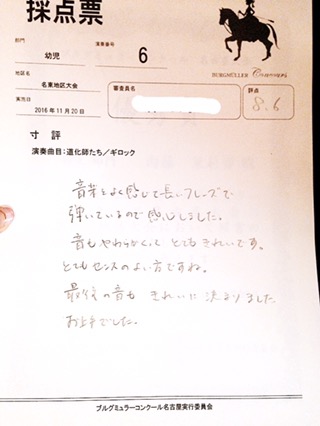 採点票
部門
幼児
演奏番号
6
地区名
名東地区大会
実施日
2016年11月20日
審査員名
BURGMÜLLER Concours
評点
8.6
寸評
演奏曲目:道化師たち/ギロック
音楽をよく感じて長いフレーズで
弾いているので感心しました。
音もやわらかくって とてもきれいです。
とてもセンスのよい方ですね。
最後の音も きれいに決まりました
お上手でした。
ブルグミュラーコンクール名古屋実行委員会